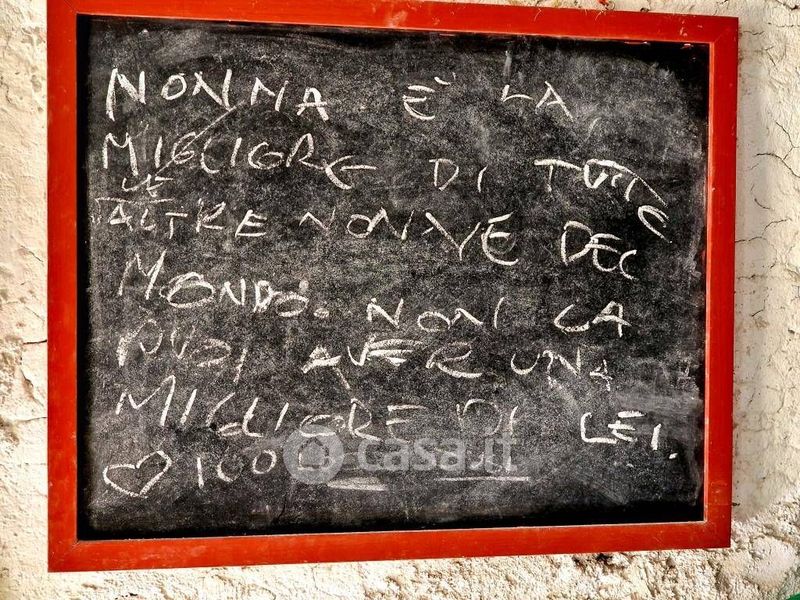 NONNA È LA
MIGLIORE DI TUTTE
LE
ALTRE NONNE DEL
MONDO. NON LA
PUOI AVER UNA
MIGLIORE DI LEI.
♡ 1000
casa.it